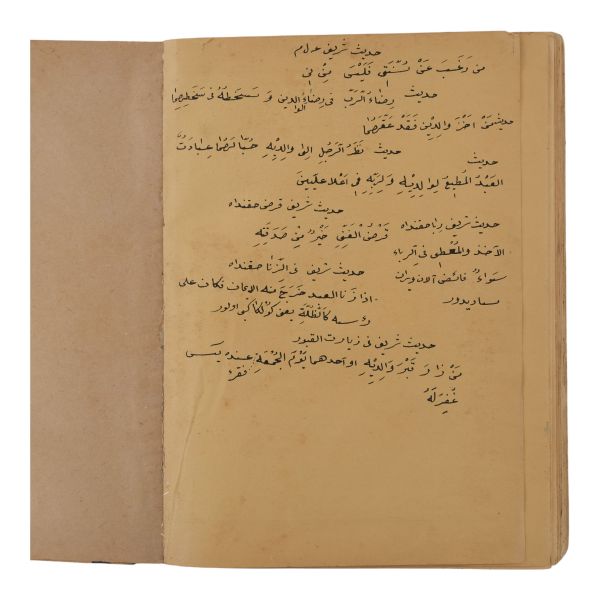 حديث شريف ع م
من رَغَبَ عَنْ سُنَّتِى فَلَيْسَ مِنِّى
حديث رِضَاءُ الرَّبِّ فى رِضَاءِ الوالدين وَ سَخطه فى سَخَطِهِمَا
حديث مَنْ اَحْزَنَ وَالِدَيْنِ فَقَدْ عَقَّهُمَا
حديث نَظَرُ الرَّجُلِ اِلَى وَالِدَيْهِ حُبًّا لَهُمَا عِبَادَتٌ
حديث
العَبْدُ المُطيعُ لِوَالِدَيْهِ وَ لِرَبِّهِ فِى اَعْلَا عِلِّيِينَ
حديث شريف قرض حقنداه
حديث شريف ربا حقنداه قَرْضُ الْفَنِّى خَيْرٌ مِنْ صَدَقَتِهِ
الآخذ والمُعْطِى فى الرباء
حديث شريف فى الزِّنَا حقنداه
سَوَاءٌ فائضى آلان ويرن
اذا زنا العبد خَرَجَ منه الايمان فكان على
مساويدور
رءسه كَالظُّلَّةِ يعنى كولكا كبى اولور
حديث شريف فى زيارت القبور
مَنْ زَارَ قَبْرَ وَالِدَيْهِ او احدهما يَوْمَ الجُمْعَةِ عِنْدَهُ يٓسٓ
فقرأ
غُفِرَ لَهُ